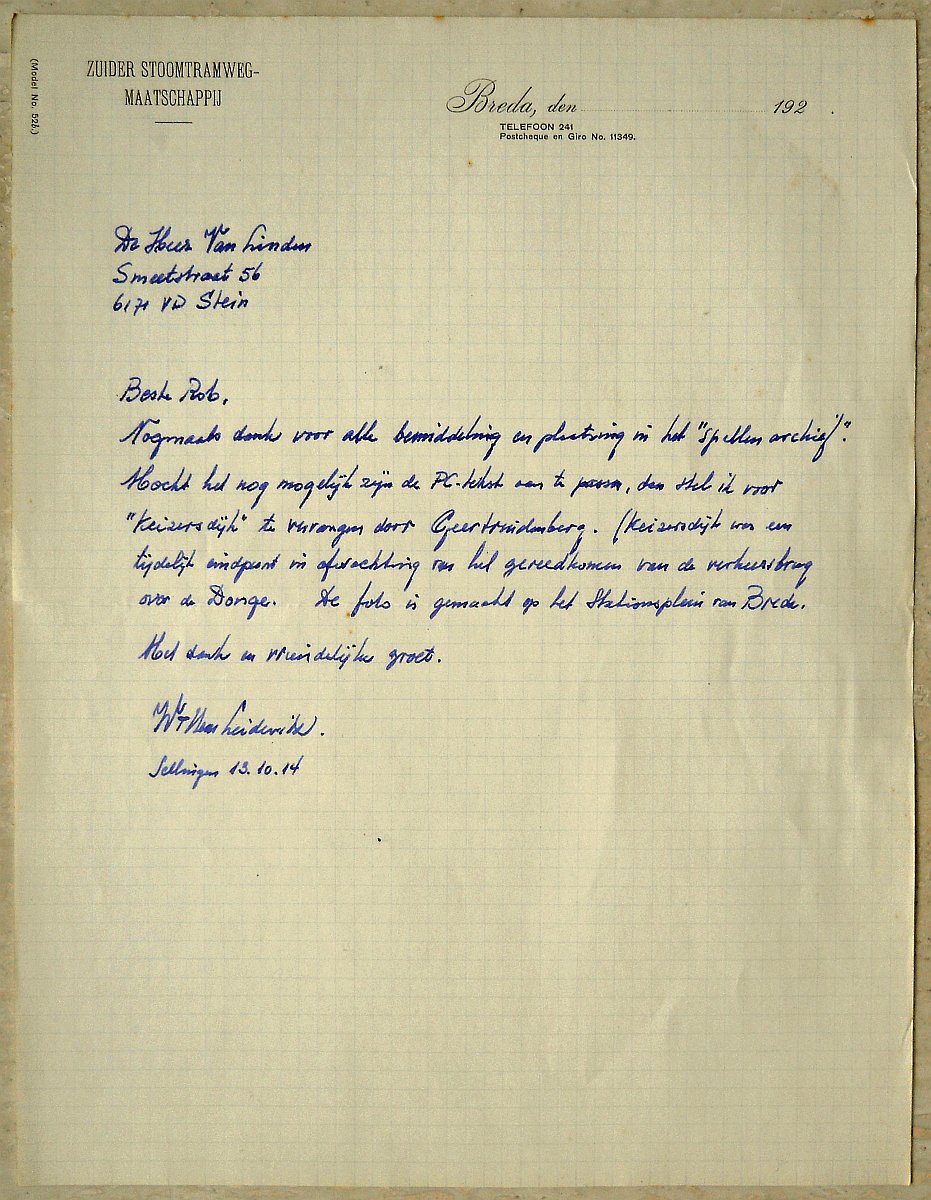 (Model No. 526.)
ZUIDER STOOMTRAMWEG-
MAATSCHAPPIJ
Breda, den 192 .
TELEFOON 241
Postcheque en Giro No. 11349.
De Heer Van Linden
Smeetstraat 56
6171 VD Stein
Beste Rob,
Nogmaals dank voor alle bemiddeling en plaatsing in het "Spellenarchief".
Mocht het nog mogelijk zijn de PC-tekst aan te passen, dan stel ik voor
"Keizersdijk" te vervangen door Geertruidenberg. (Keizersdijk was een
tijdelijk eindpunt in afwachting van het gereedkomen van de verkeersbrug
over de Donge. De foto is gemaakt op het Stationsplein van Breda.
Met dank en vriendelijke groet.
Sellingen 13.10.14